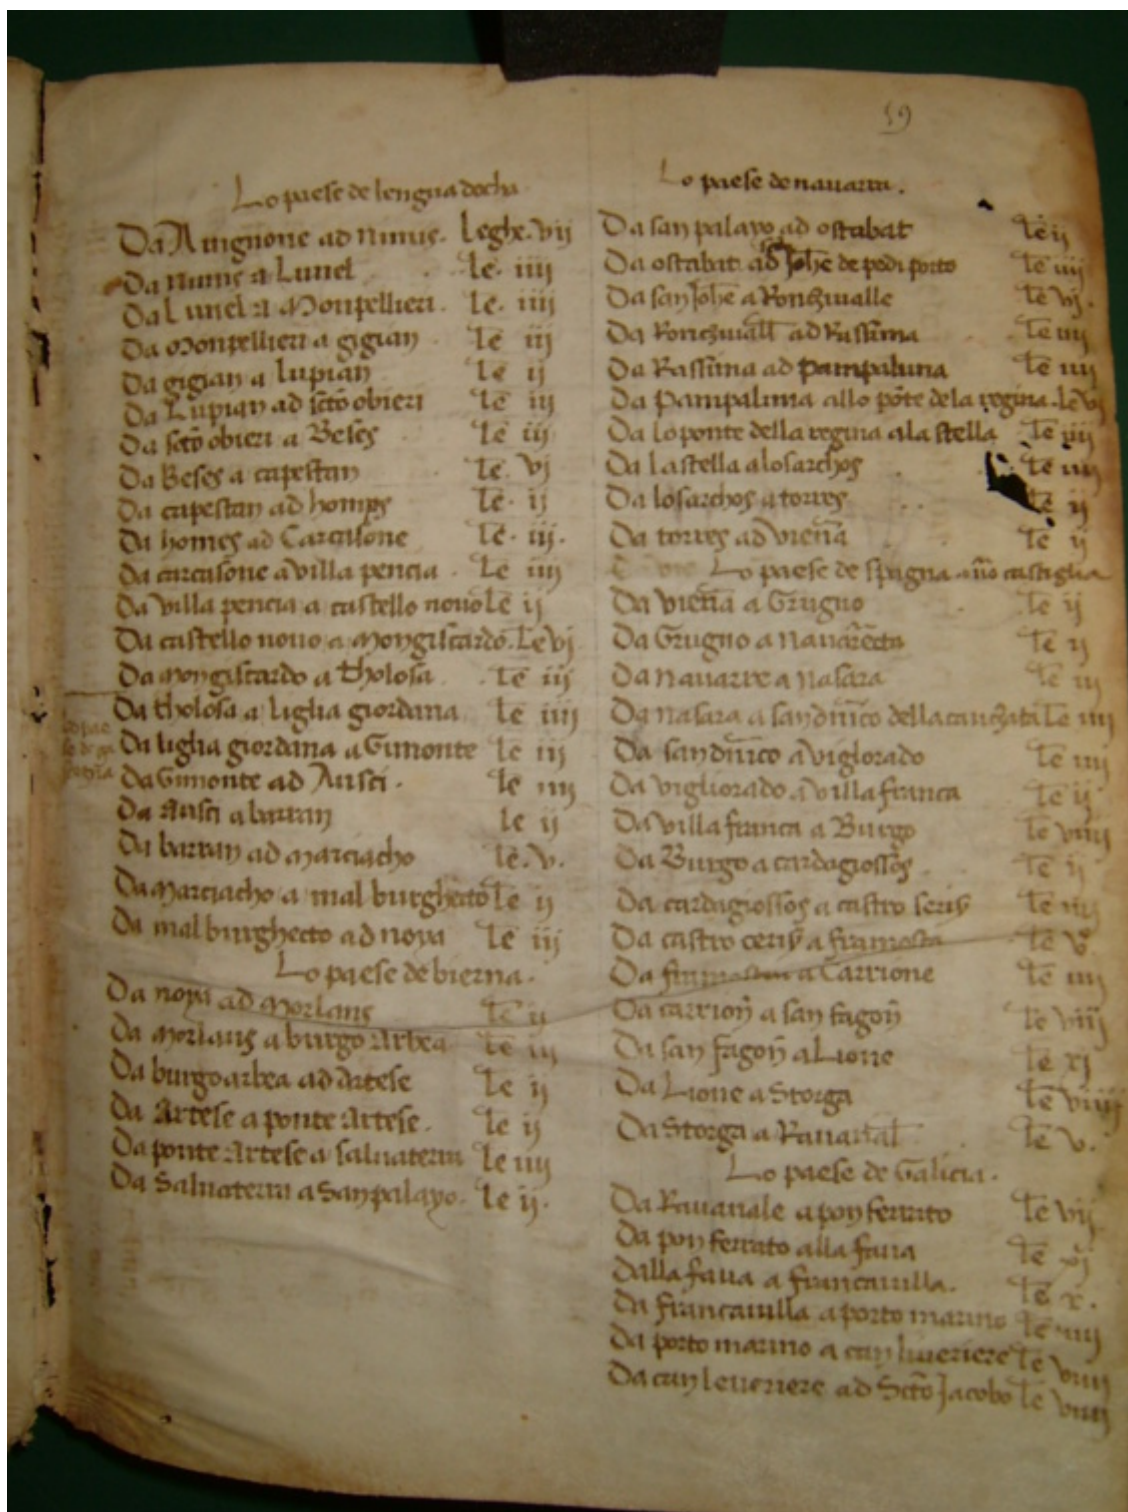 59
Lo paese de lengua docha
Da Auignone ad nimis. Leghe. vij
Da nimis a Lunel le. iiij
Da Lunel a Monpellieri. le. iiij
Da Monpellieri a gigian le iij
Da gigian a lupian le ij
Da Lupian ad sc̄to obieri le iij
Da sc̄to obieri a Beses le iij
Da Beses a capestan le. vj
Da capestan ad homps le. ij
Da homes ad Carcasone le. iij.
Da carcasone a villa pencia. le iiij
Da villa pencia a castello nouo le ij
Da castello nouo a Mongiscardo. le vj
Da Mongiscardo a tholosa. le iij
Da tholosa a liglia giordana le iiij
Da liglia giordana a Gimonte le iij
Da Gimonte ad Ausci. le iiij
Da Ausci a barran le ij
Da barran ad Marciacho le. v.
Da Marciacho a mal burghecto le ij
Da mal burghecto ad noya le iij
Lo paese de bierna.
Da noya ad Morlans le ij
Da Morlans a burgo Arbea le iij
Da burgo arbea ad Artese le ij
Da Artese a ponte Artese. le ij
Da ponte Artese a saluaterra le iiij
Da Saluaterra a San palayo. le ij.
Lo paese de nauarra.
Da san palayo ad ostabat le ij
Da ostabat ad Joh̄e de pedi porto le iiij
Da san Joh̄e a Ronzivalle le vj.
Da Ronzivall ad Rassina le iiij
Da Rassina ad Pampaluna le iiij
Da Pampaluna allo pōte dela regina. le v
Da lo ponte della regina a la stella le iiij
Da la stella a losarchos le iiij
Da losarchos a torres le ij
Da torres ad vien̄a le ij
Lo paese de spagna castiglia
Da vien̄a a Grugno le ij
Da Grugno a le ij
Da nauarre a nasara le iij
Da nasara a san dn̄ico della le iiij
Da san dn̄ico a vigliorado le iiij
Da vigliorado a villa franca le ij
Da villa franca a Burgo le viiij
Da Burgo a cardagiossos le ij
Da cardagiossos a castro seris le iiij
Da castro ceris a framosta le v.
Da a Carrione le iiij
Da carrion a san fagon le viij
Da san fagon a Lione le xj
Da Lione a Storga le viiij
Da Storga a Rauanal le v.
Lo paese de Galicia.
Da Rauanale a pon ferrato le vij
Da pon ferrato alla faua le xj
Dalla faua a francauilla. le x.
Da francauilla a porto marino le iiij
Da porto marino a le viiij
Da can leueriere ad Sc̄to Jacobo le viiij